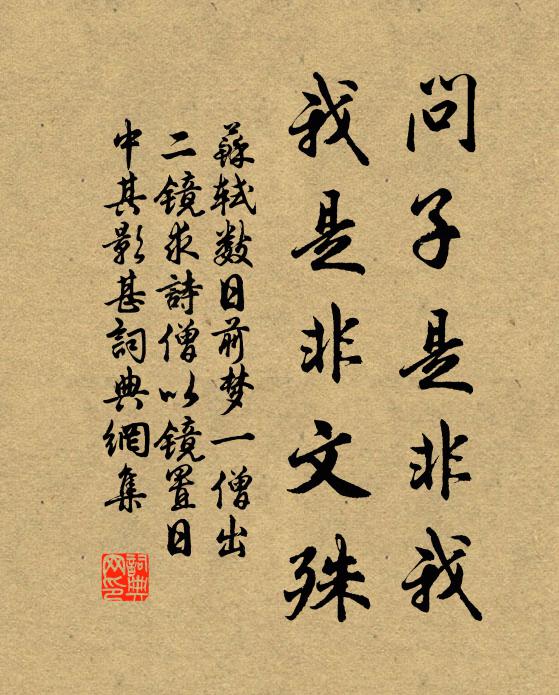 问子是非我
我是非文殊
蘇轼数日前梦一僧出
二镜求詩僧以镜置日
中其影甚詞典網集
詞典网印